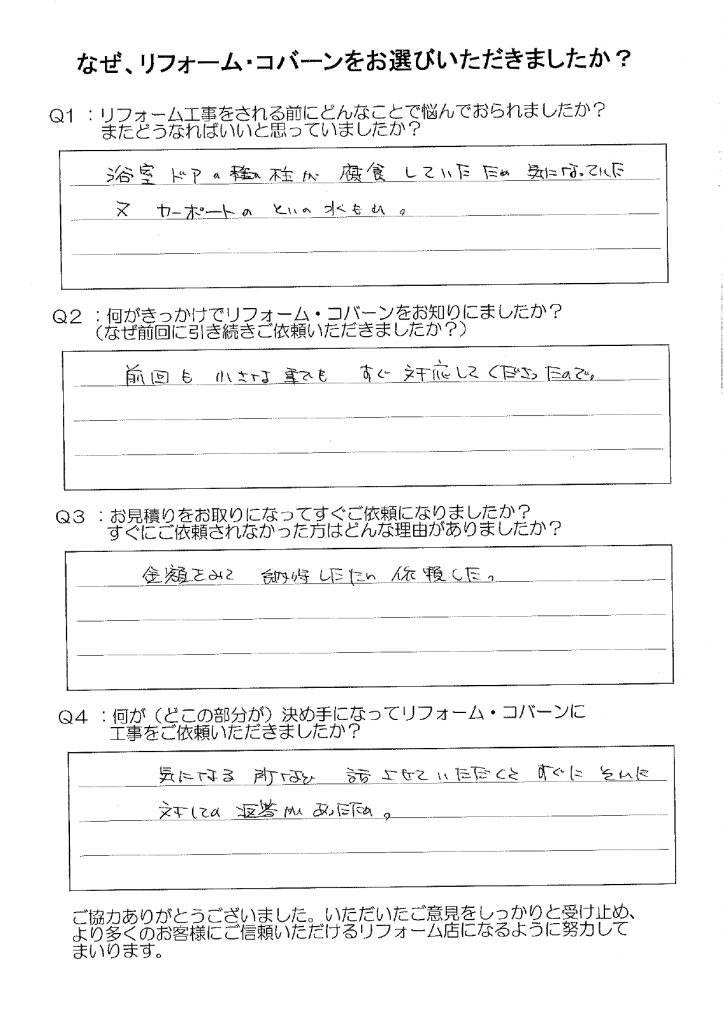 なぜ、リフォーム・コバーンをお選びいただきましたか？
Q1：リフォーム工事をされる前にどんなことで悩んでおられましたか？
またどうなればいいと思っていましたか？
浴室 ドアの 枠が 腐食 していた ため 気になっていた
又 カーポートの といの 水もれ。
Q2：何がきっかけでリフォーム・コバーンをお知りにましたか？
（なぜ前回に引き続きご依頼いただきましたか？）
前回も 小さな 事でも すぐ 対応してくださったので。
Q3：お見積りをお取りになってすぐご依頼になりましたか？
すぐにご依頼されなかった方はどんな理由がありましたか？
金額をみて 納得したため 依頼した。
Q4：何が（どこの部分が）決め手になってリフォーム・コバーンに
工事をご依頼いただきましたか？
気になる 所など 話させていただくと すぐに それに
対しての 返答が あったため。
ご協力ありがとうございました。いただいたご意見をしっかりと受け止め、
より多くのお客様にご信頼いただけるリフォーム店になるように努力して
まいります。